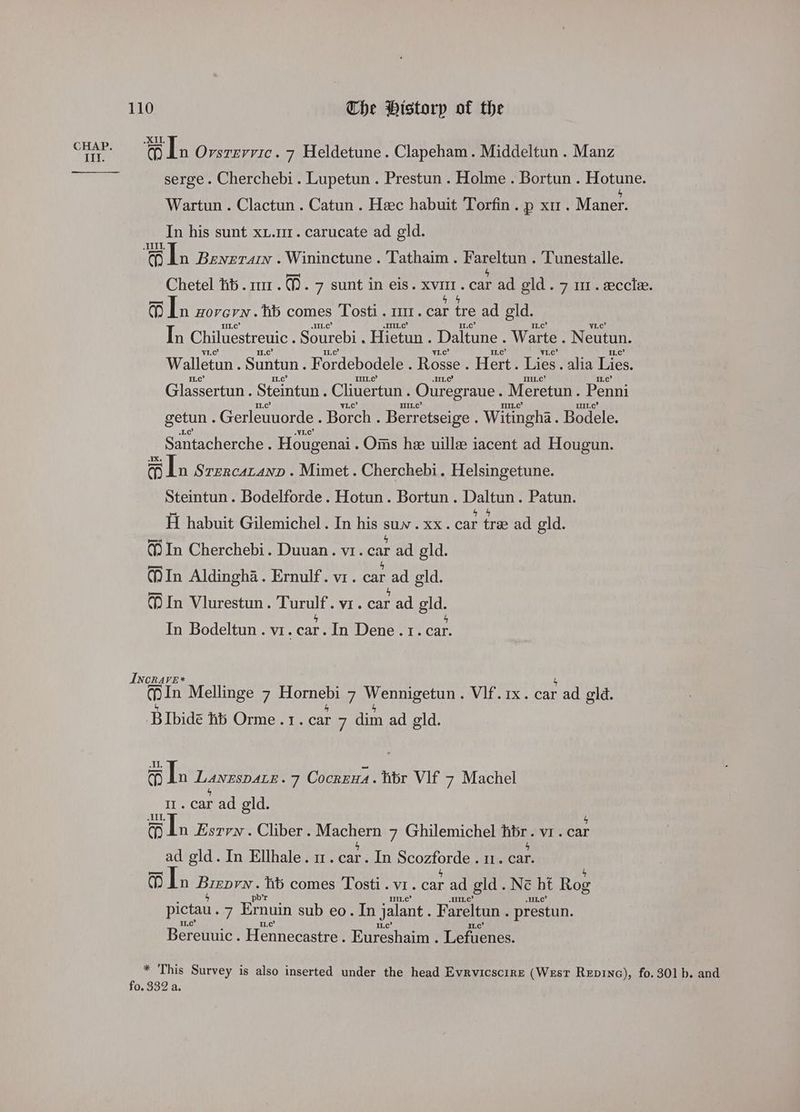 110 The History of the
CHAP. III.
XII.
ꝳ In OVSTEVVIC. 7 Heldetune. Clapeham. Middeltun. Manz
serge. Cherchebi. Lupetun. Prestun. Holme. Bortun. Hotune.
Wartun. Clactun. Catun. Hæc habuit Torfin. p XII. Maner.
In his sunt XL.III. carucate ad gld.
IIII.
ꝳ In BENETAIN. Wininctune. Tathaim. Fareltun. Tunestalle.
Chetel hƀ. IIII. ꝳ. 7 sunt in eis. XVIII. car ad gld. 7 III. æcclæ.
ꝳ In HOVGVN. hƀ comes Tosti. IIII. car tre ad gld.
III.c' III.c' IIII.c' II.c' II.c' VI.c'
In Chiluestreuic. Sourebi. Hietun. Daltune. Warte. Neutun.
VI.c' II.c' II.c' VI.c' II.c' VI.c' II.c'
Walletun. Suntun. Fordebodele. Rosse. Hert. Lies. alia Lies.
II.c' II.c' IIII.c' III.c' IIII.c' II.c'
Glassertun. Steintun. Cliuertun. Ouregraue. Meretun. Penni
II.c' VI.c' IIII.c' IIII.c' IIII.c'
getun. Gerleuuorde. Borch. Berretseige. Witinghā. Bodele.
I.c' VI.c'
Santacherche. Hougenai. Om̄s hæ uillæ iacent ad Hougun.
IX.
ꝳ In STERCALAND. Mimet. Cherchebi. Helsingetune.
Steintun. Bodelforde. Hotun. Bortun. Daltun. Patun.
H̄ habuit Gilemichel. In his suɴ. XX. car træ ad gld.
ꝳ In Cherchebi. Duuan. VI. car ad gld.
ꝳ In Aldinghā. Ernulf. VI. car ad gld.
ꝳ In Vlurestun. Turulf. VI. car ad gld.
In Bodeltun. VI. car. In Dene. I. car.
INCRAVE*
ꝳ In Mellinge 7 Hornebi 7 Wennigetun. Vlf. IX. car ad gld.
B Ibidē hƀ Orme. I. car 7 dim ad gld.
II.
ꝳ In LANESDALE. 7 COCREHA. hƀr Vlf 7 Machel
II. car ad gld.
III.
ꝳ In ESTVN. Cliber. Machern 7 Ghilemichel hƀr. VI. car
ad gld. In Ellhale. II. car. In Scozforde. II. car.
ꝳ In BIEDVN. hƀ comes Tosti. VI. car ad gld. Nē ht Rog
pb'r IIII.c' IIII.c' III.c'
pictau. 7 Ernuin sub eo. In jalant. Fareltun. prestun.
II.c' II.c' II.c' II.c'
Bereuuic. Hennecastre. Eureshaim. Lefuenes.
* This Survey is also inserted under the head EVRVICSCIRE (WEST REDING), fo. 301 b. and
fo. 332 a.